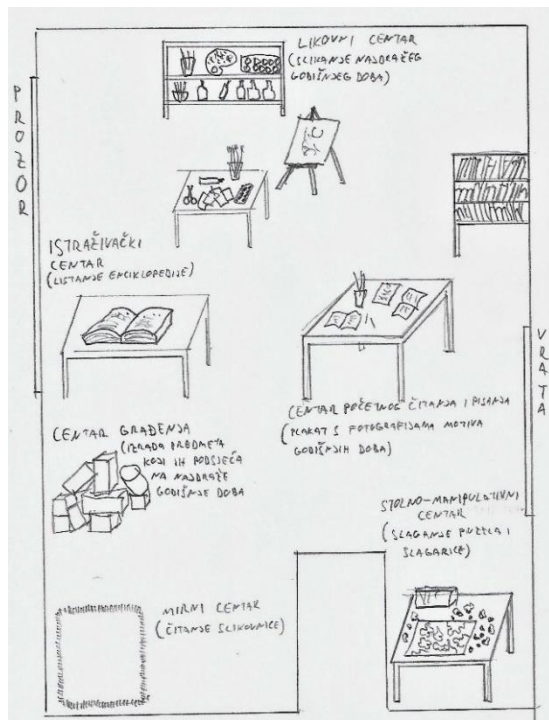 LIKOVNI CENTAR
(SLIKANJE NAJDRAŽEG
GODIŠNJEG DOBA)
PROZOR
ISTRAŽIVAČKI
CENTAR
(LISTANJE ENCIKLOPEDIJE)
VRATA
CENTAR POČETNOG ČITANJA I PISANJA
(PLAKAT S FOTOGRAFIJAMA MOTIVA
GODIŠNJIH DOBA)
CENTAR GRAĐENJA
(IZRADA PREDMETA
KOJI IH PODSJEĆA
NA NAJDRAŽE
GODIŠNJE DOBA
STOLNO-MANIPULATIVNI
CENTAR
(SLAGANJE PUZZLA I
SLAGARICE)
MIRNI CENTAR
(ČITANJE SLIKOVNICE)